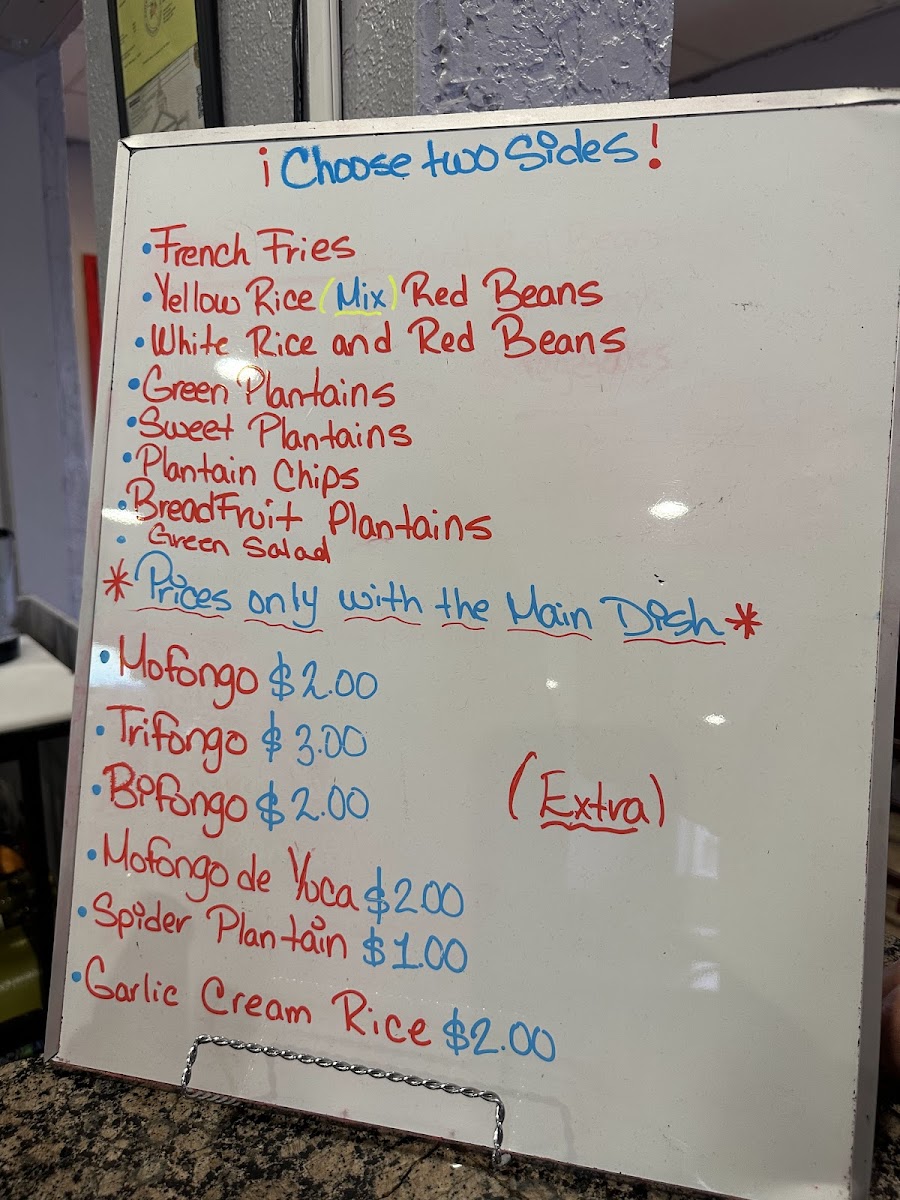 ¡Choose two Sides!
• French Fries
• Yellow Rice (Mix) Red Beans
• White Rice and Red Beans
• Green Plantains
• Sweet Plantains
• Plantain Chips
• BreadFruit Plantains
• Green Salad
* Prices only with the Main Dish *
• Mofongo $2.00
• Trifongo $3.00
• Bifongo $2.00
(Extra)
• Mofongo de Yuca $2.00
• Spider Plantain $1.00
• Garlic Cream Rice $2.00